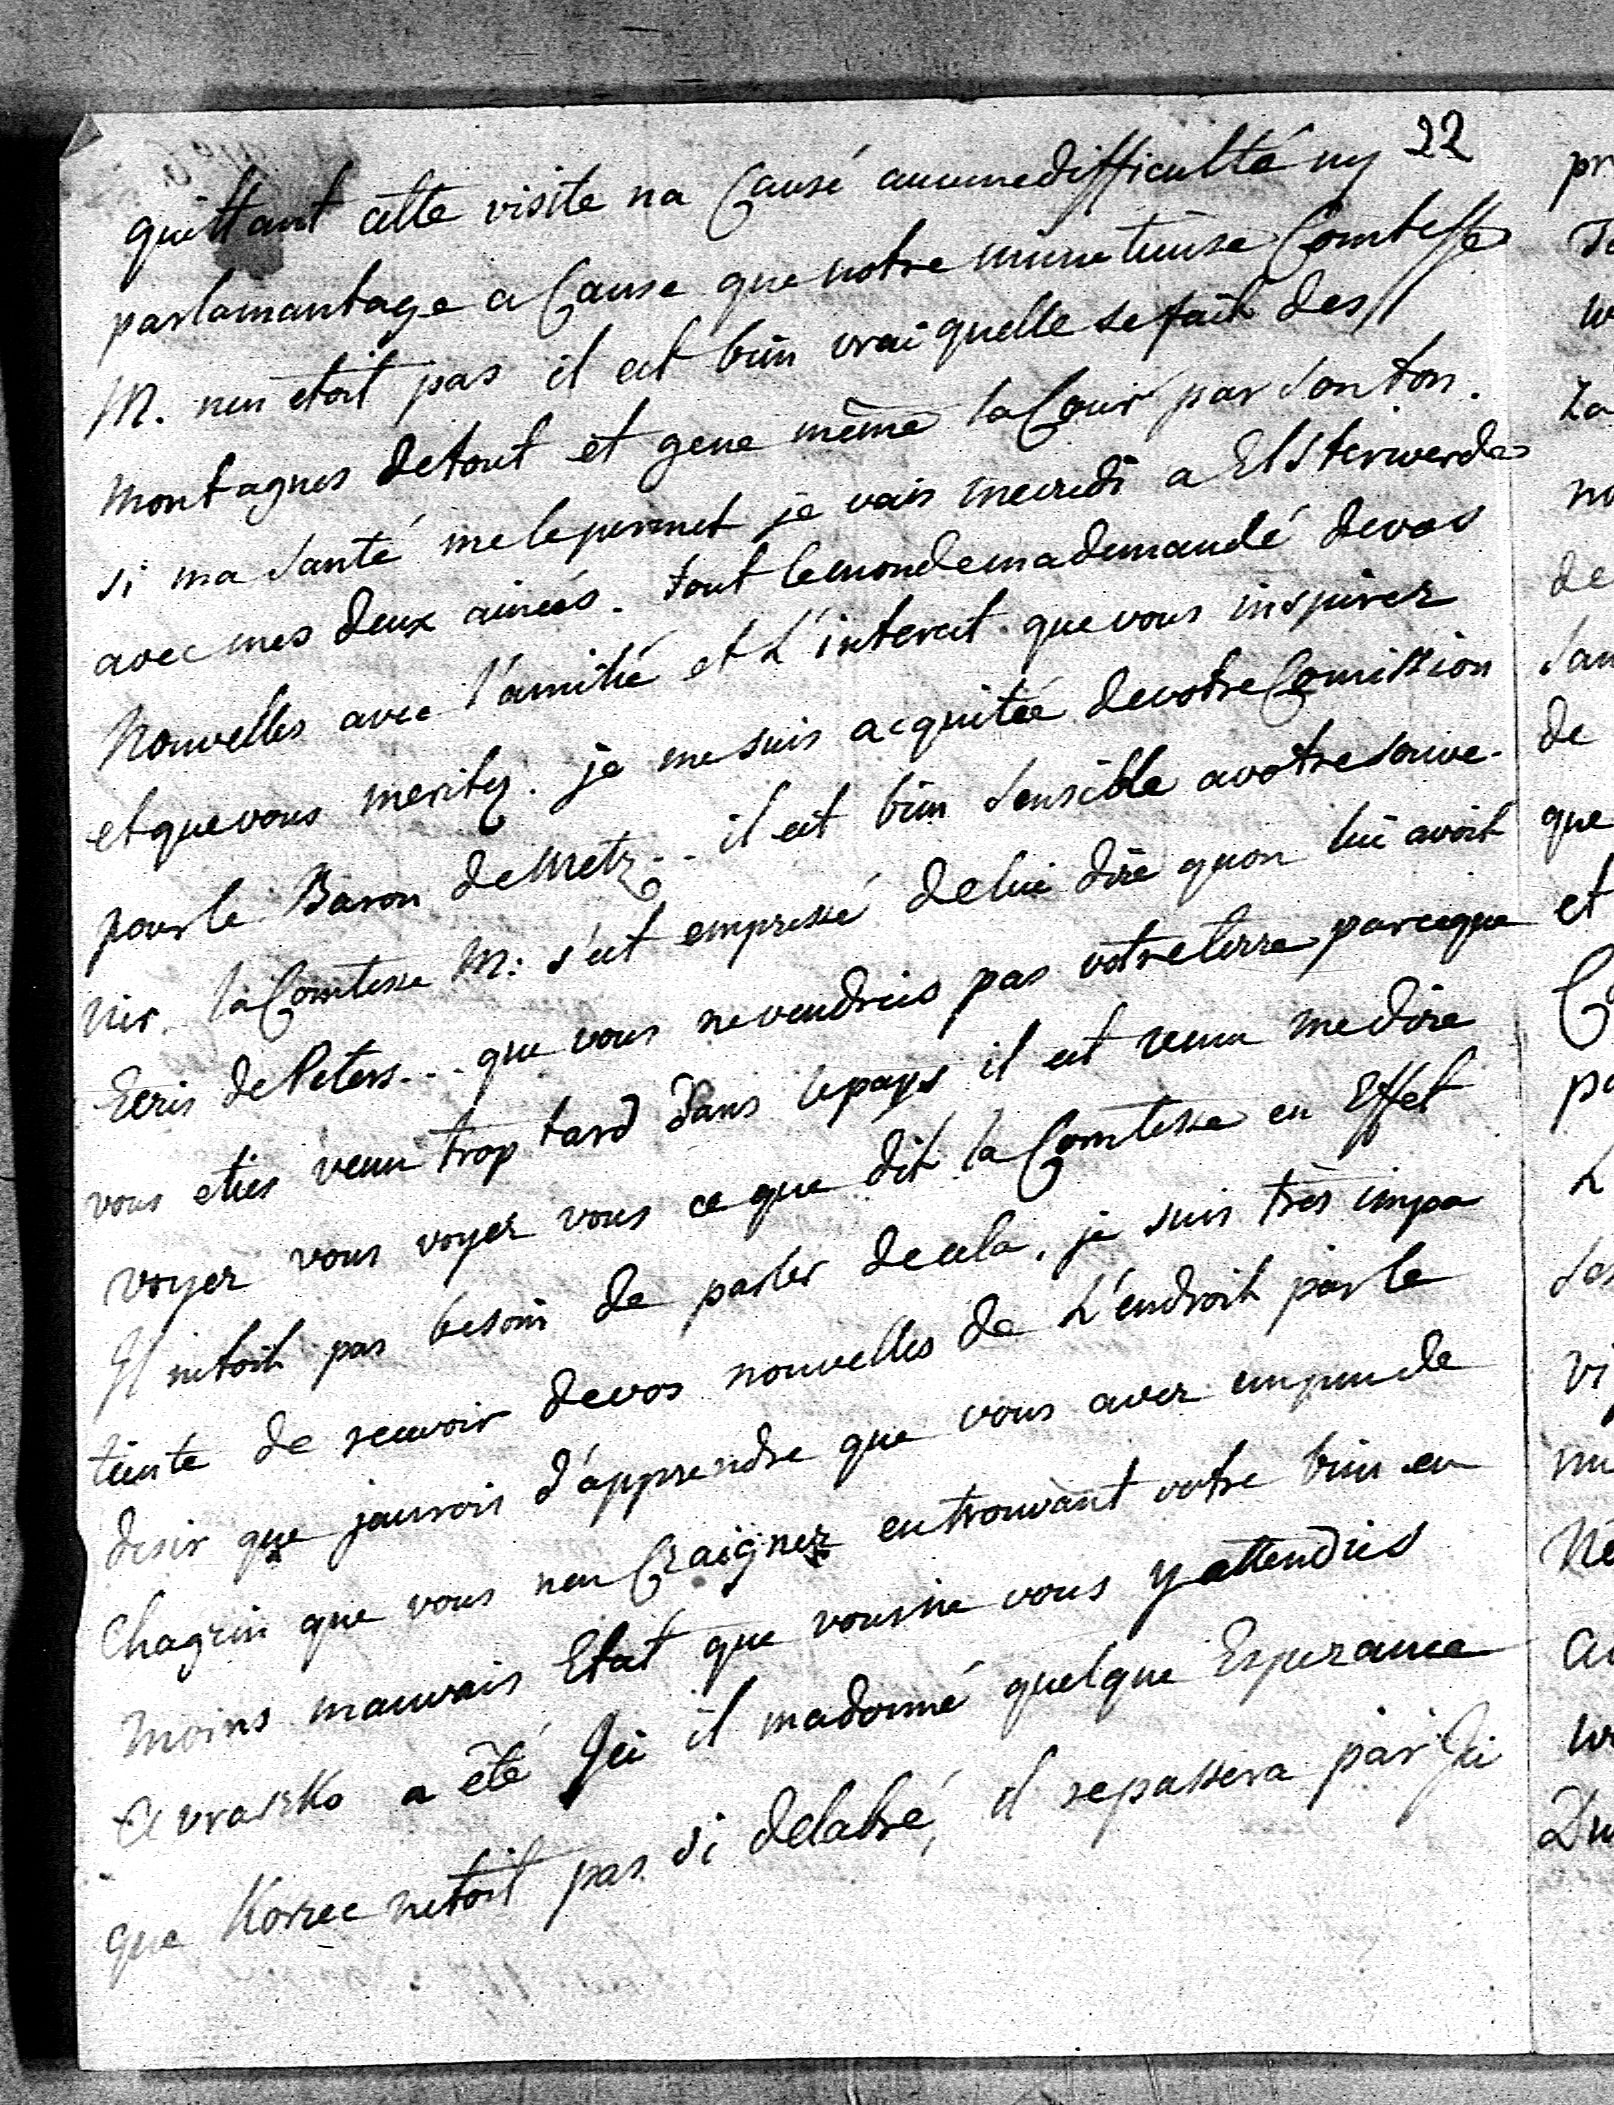 22
quittant cette visite na Causé aucune difficulté ny
parlamantage a Cause que notre minutieuse Comtesse
M. nen etoit pas il est bien vrai quelle se fait des
Montagnes de tout et gene même la Cour par son ton.
si ma santé me le permet je vais mecredi a Elsterwerde
avec mes deux ainées. tout le monde ma demandé de vos
Nouvelles avec l'amitié et L'interet que vous inspirez
et que vous meritez. je me suis acquitée de votre Comission
pour le Baron de Metz.. il est bien sensible a votre souve-
nir. la Comtesse M: s'est empressé de lui dire quon lui avoit
Ecris de Peters... que vous ne vendries pas votre terre parceque
vous eties venu trop tard dans le pays il est venu me dire
voyez vous voyez vous ce que dit la Comtesse en Effet
Il netoit pas besoin de parler de cela. je suis très impa
tiente de recevoir de vos nouvelles de L'endroit par le
desir que jaurois d'apprendre que vous avez un peu de
Chagrin que vous nen Craignez en trouvant votre bien en
moins mauvais Etat que vous ne vous y attendies
a été Ici il ma donné quelque Esperance
que Korzec netoit pas si delabré, il repassera par Ici
pr
w
de
de
que
et
L
vi